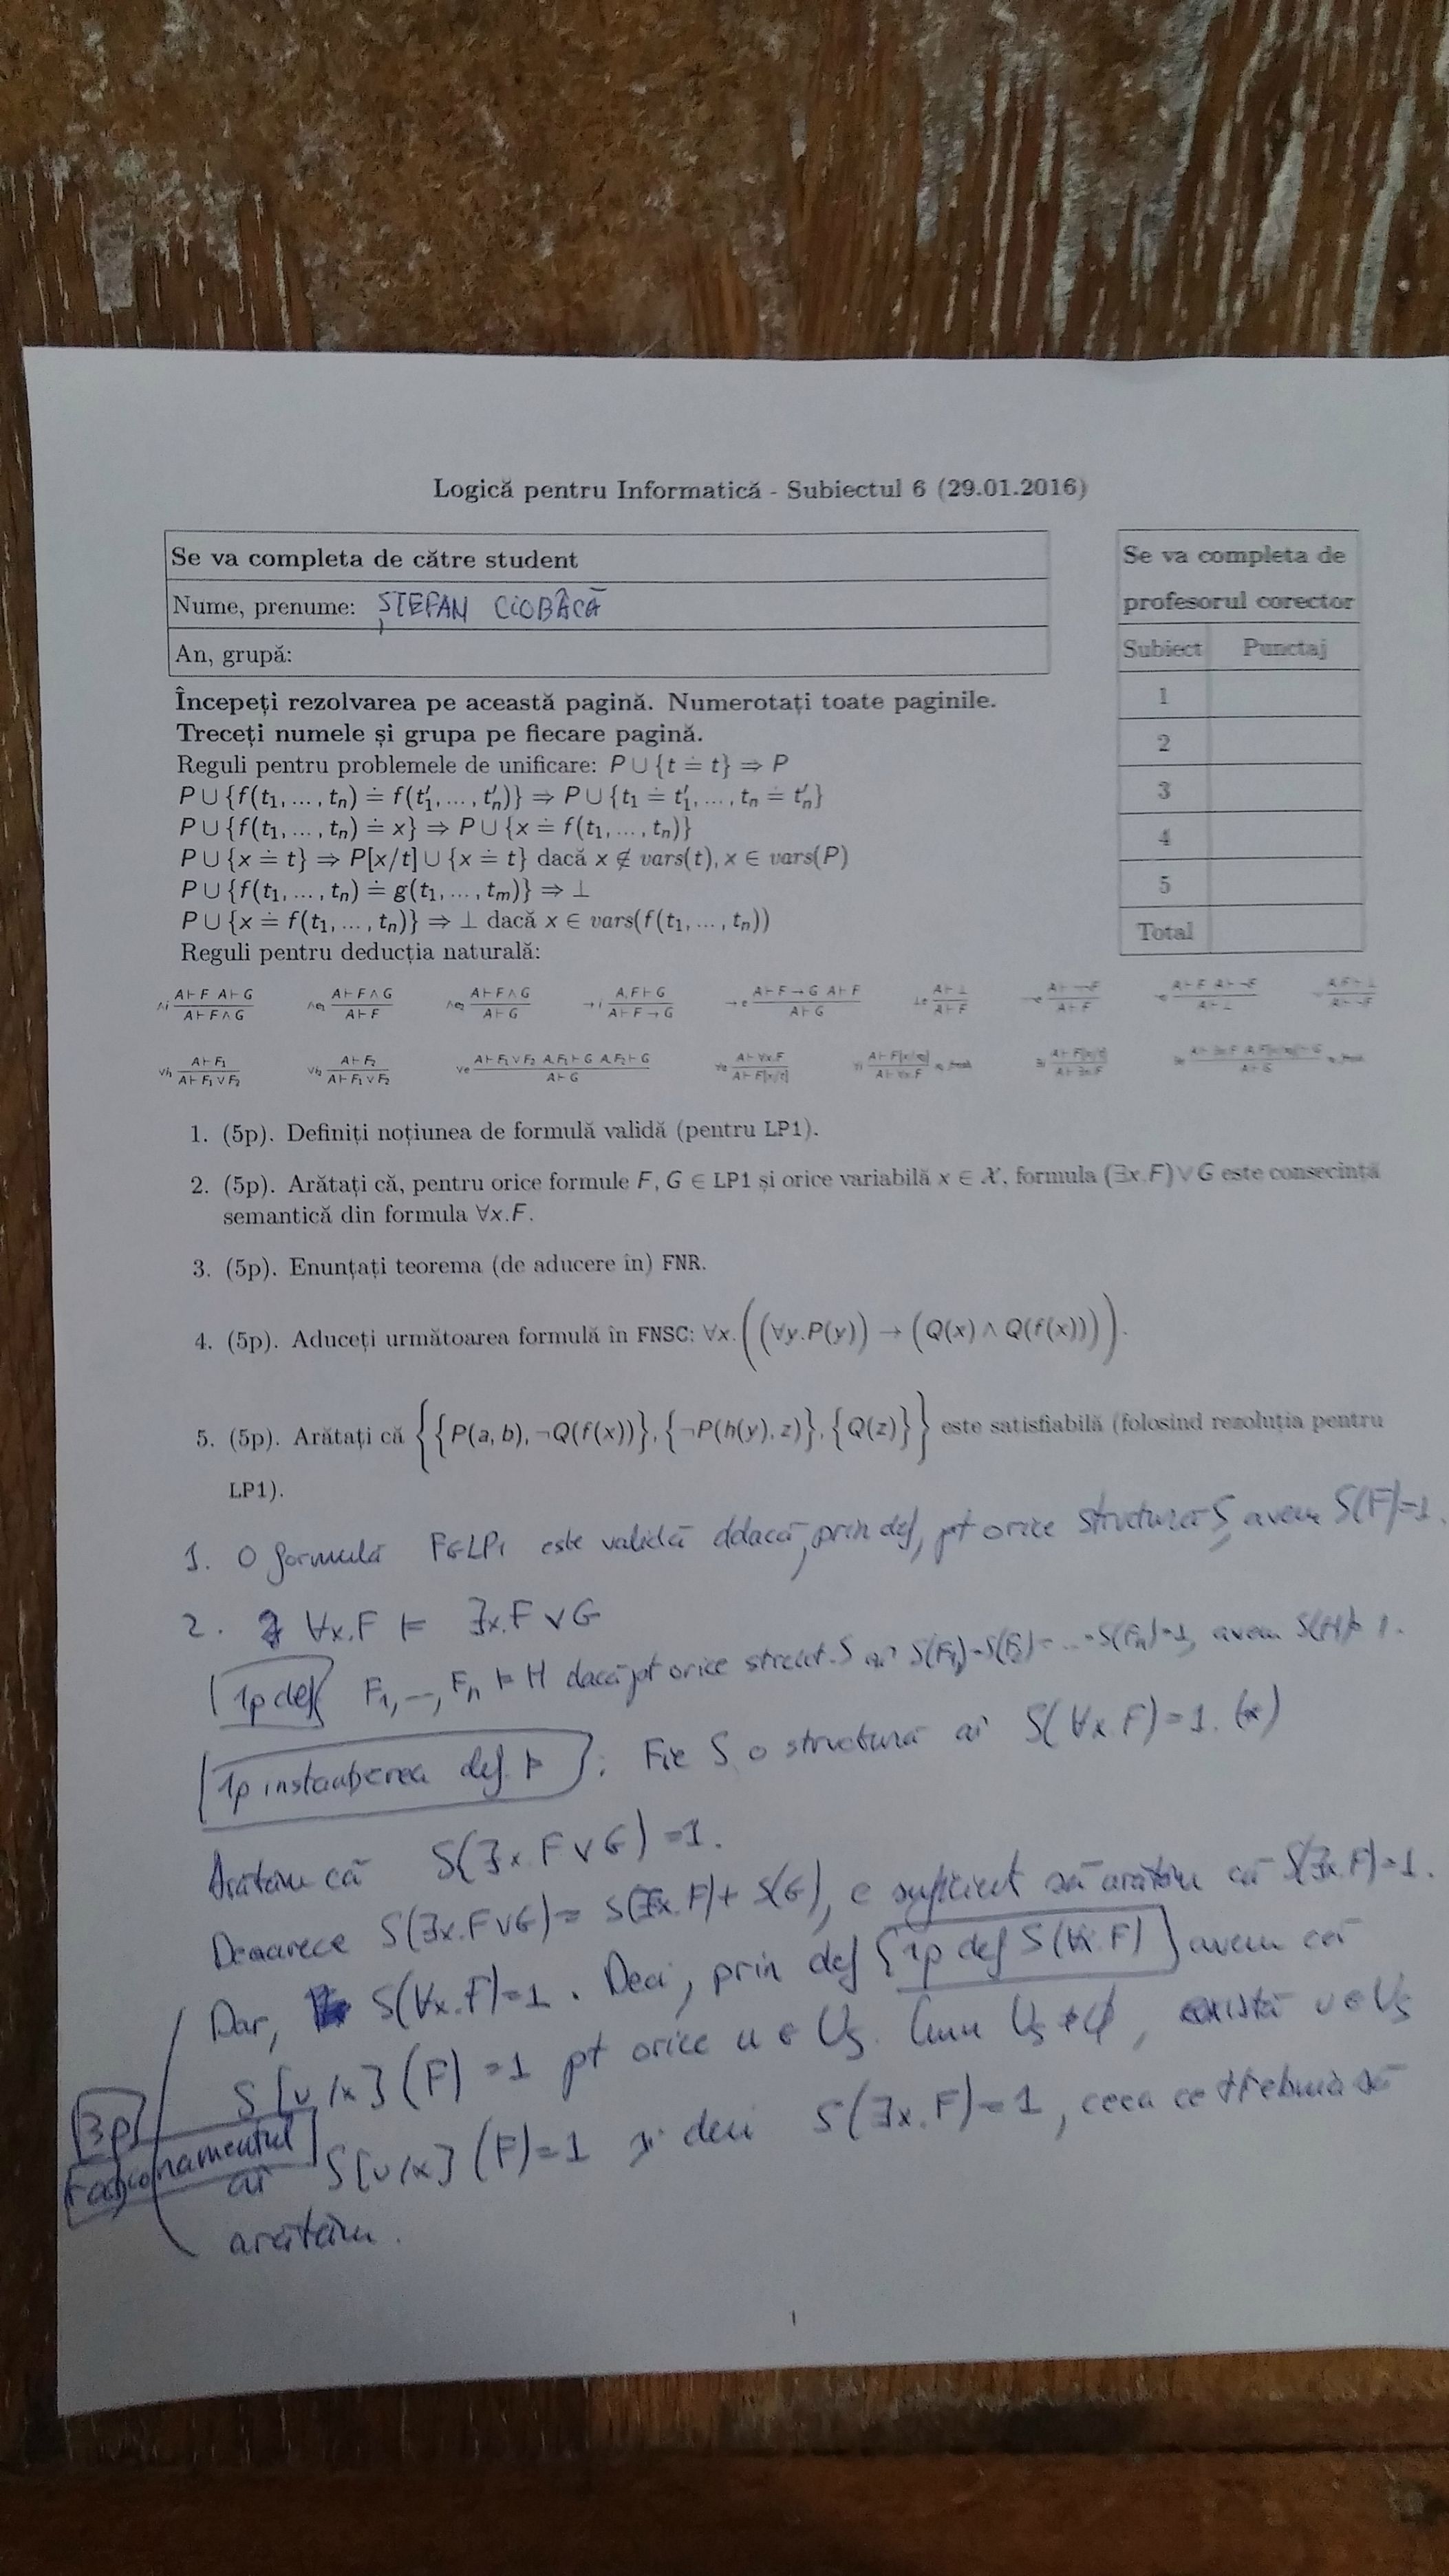 Logică pentru Informatică - Subiectul 6 (29.01.2016)
Se va completa de către student
Nume, prenume: ȘTEFAN CIOBÂCĂ
An, grupă:
Se va completa de
profesorul corector
Subiect Punctaj
1
2
3
4
5
Total
Începeți rezolvarea pe această pagină. Numerotați toate paginile.
Treceți numele și grupa pe fiecare pagină.
Reguli pentru problemele de unificare: P ∪ {t ≐ t} ⇒ P
P ∪ {f(t₁, ... , tₙ) ≐ f(t′₁, ... , t′ₙ)} ⇒ P ∪ {t₁ ≐ t′₁, ... , tₙ ≐ t′ₙ}
P ∪ {f(t₁, ... , tₙ) ≐ x} ⇒ P ∪ {x ≐ f(t₁, ... , tₙ)}
P ∪ {x ≐ t} ⇒ P[x/t] ∪ {x ≐ t} dacă x ∉ vars(t), x ∈ vars(P)
P ∪ {f(t₁, ... , tₙ) ≐ g(t₁, ... , tₘ)} ⇒ ⊥
P ∪ {x ≐ f(t₁, ... , tₙ)} ⇒ ⊥ dacă x ∈ vars(f(t₁, ... , tₙ))
Reguli pentru deducția naturală:
∧i A⊢F A⊢G / A⊢F∧G ∧e₁ A⊢F∧G / A⊢F ∧e₂ A⊢F∧G / A⊢G →i A,F⊢G / A⊢F→G →e A⊢F→G A⊢F / A⊢G ⊥e A⊢⊥ / A⊢F
∨i₁ A⊢F₁ / A⊢F₁∨F₂ ∨i₂ A⊢F₂ / A⊢F₁∨F₂ ∨e A⊢F₁∨F₂ A,F₁⊢G A,F₂⊢G / A⊢G ∀e A⊢∀x.F / A⊢F[x/t]
1. (5p). Definiți noțiunea de formulă validă (pentru LP1).
2. (5p). Arătați că, pentru orice formule F, G ∈ LP1 și orice variabilă x ∈ X, formula (∃x.F)∨G este consecință
semantică din formula ∀x.F.
3. (5p). Enunțați teorema (de aducere în) FNR.
4. (5p). Aduceți următoarea formulă în FNSC: ∀x.((∀y.P(y)) → (Q(x) ∧ Q(f(x)))).
5. (5p). Arătați că {{P(a, b), ¬Q(f(x))}, {¬P(h(y), z)}, {Q(z)}} este satisfiabilă (folosind rezoluția pentru
LP1).
1. O formulă F∈LP1 este validă ddacă, prin def, pt orice structură S, avem S(F)=1.
2. ∀x.F ⊨ ∃x.F ∨ G
1p def F₁, ..., Fₙ ⊨ H dacă pt orice struct. S aî S(F₁)=S(F₂)=...=S(Fₙ)=1, avem S(H)=1.
1p instanțierea def. ⊨ : Fie S o structură aî S(∀x.F)=1. (*)
Arătăm că S(∃x.F∨G)=1.
Deoarece S(∃x.F∨G)= S(∃x.F)+S(G), e suficient să arătăm că S(∃x.F)=1.
Dar, S(∀x.F)=1. Deci, prin def [1p def S(∀x.F)] avem că
S[u/x](F)=1 pt orice u ∈ Uₛ. Cum Uₛ≠∅, există u∈Uₛ
3p raționamentul
aî S[u/x](F)=1 și deci S(∃x.F)=1, ceea ce trebuia să
arătăm.
1